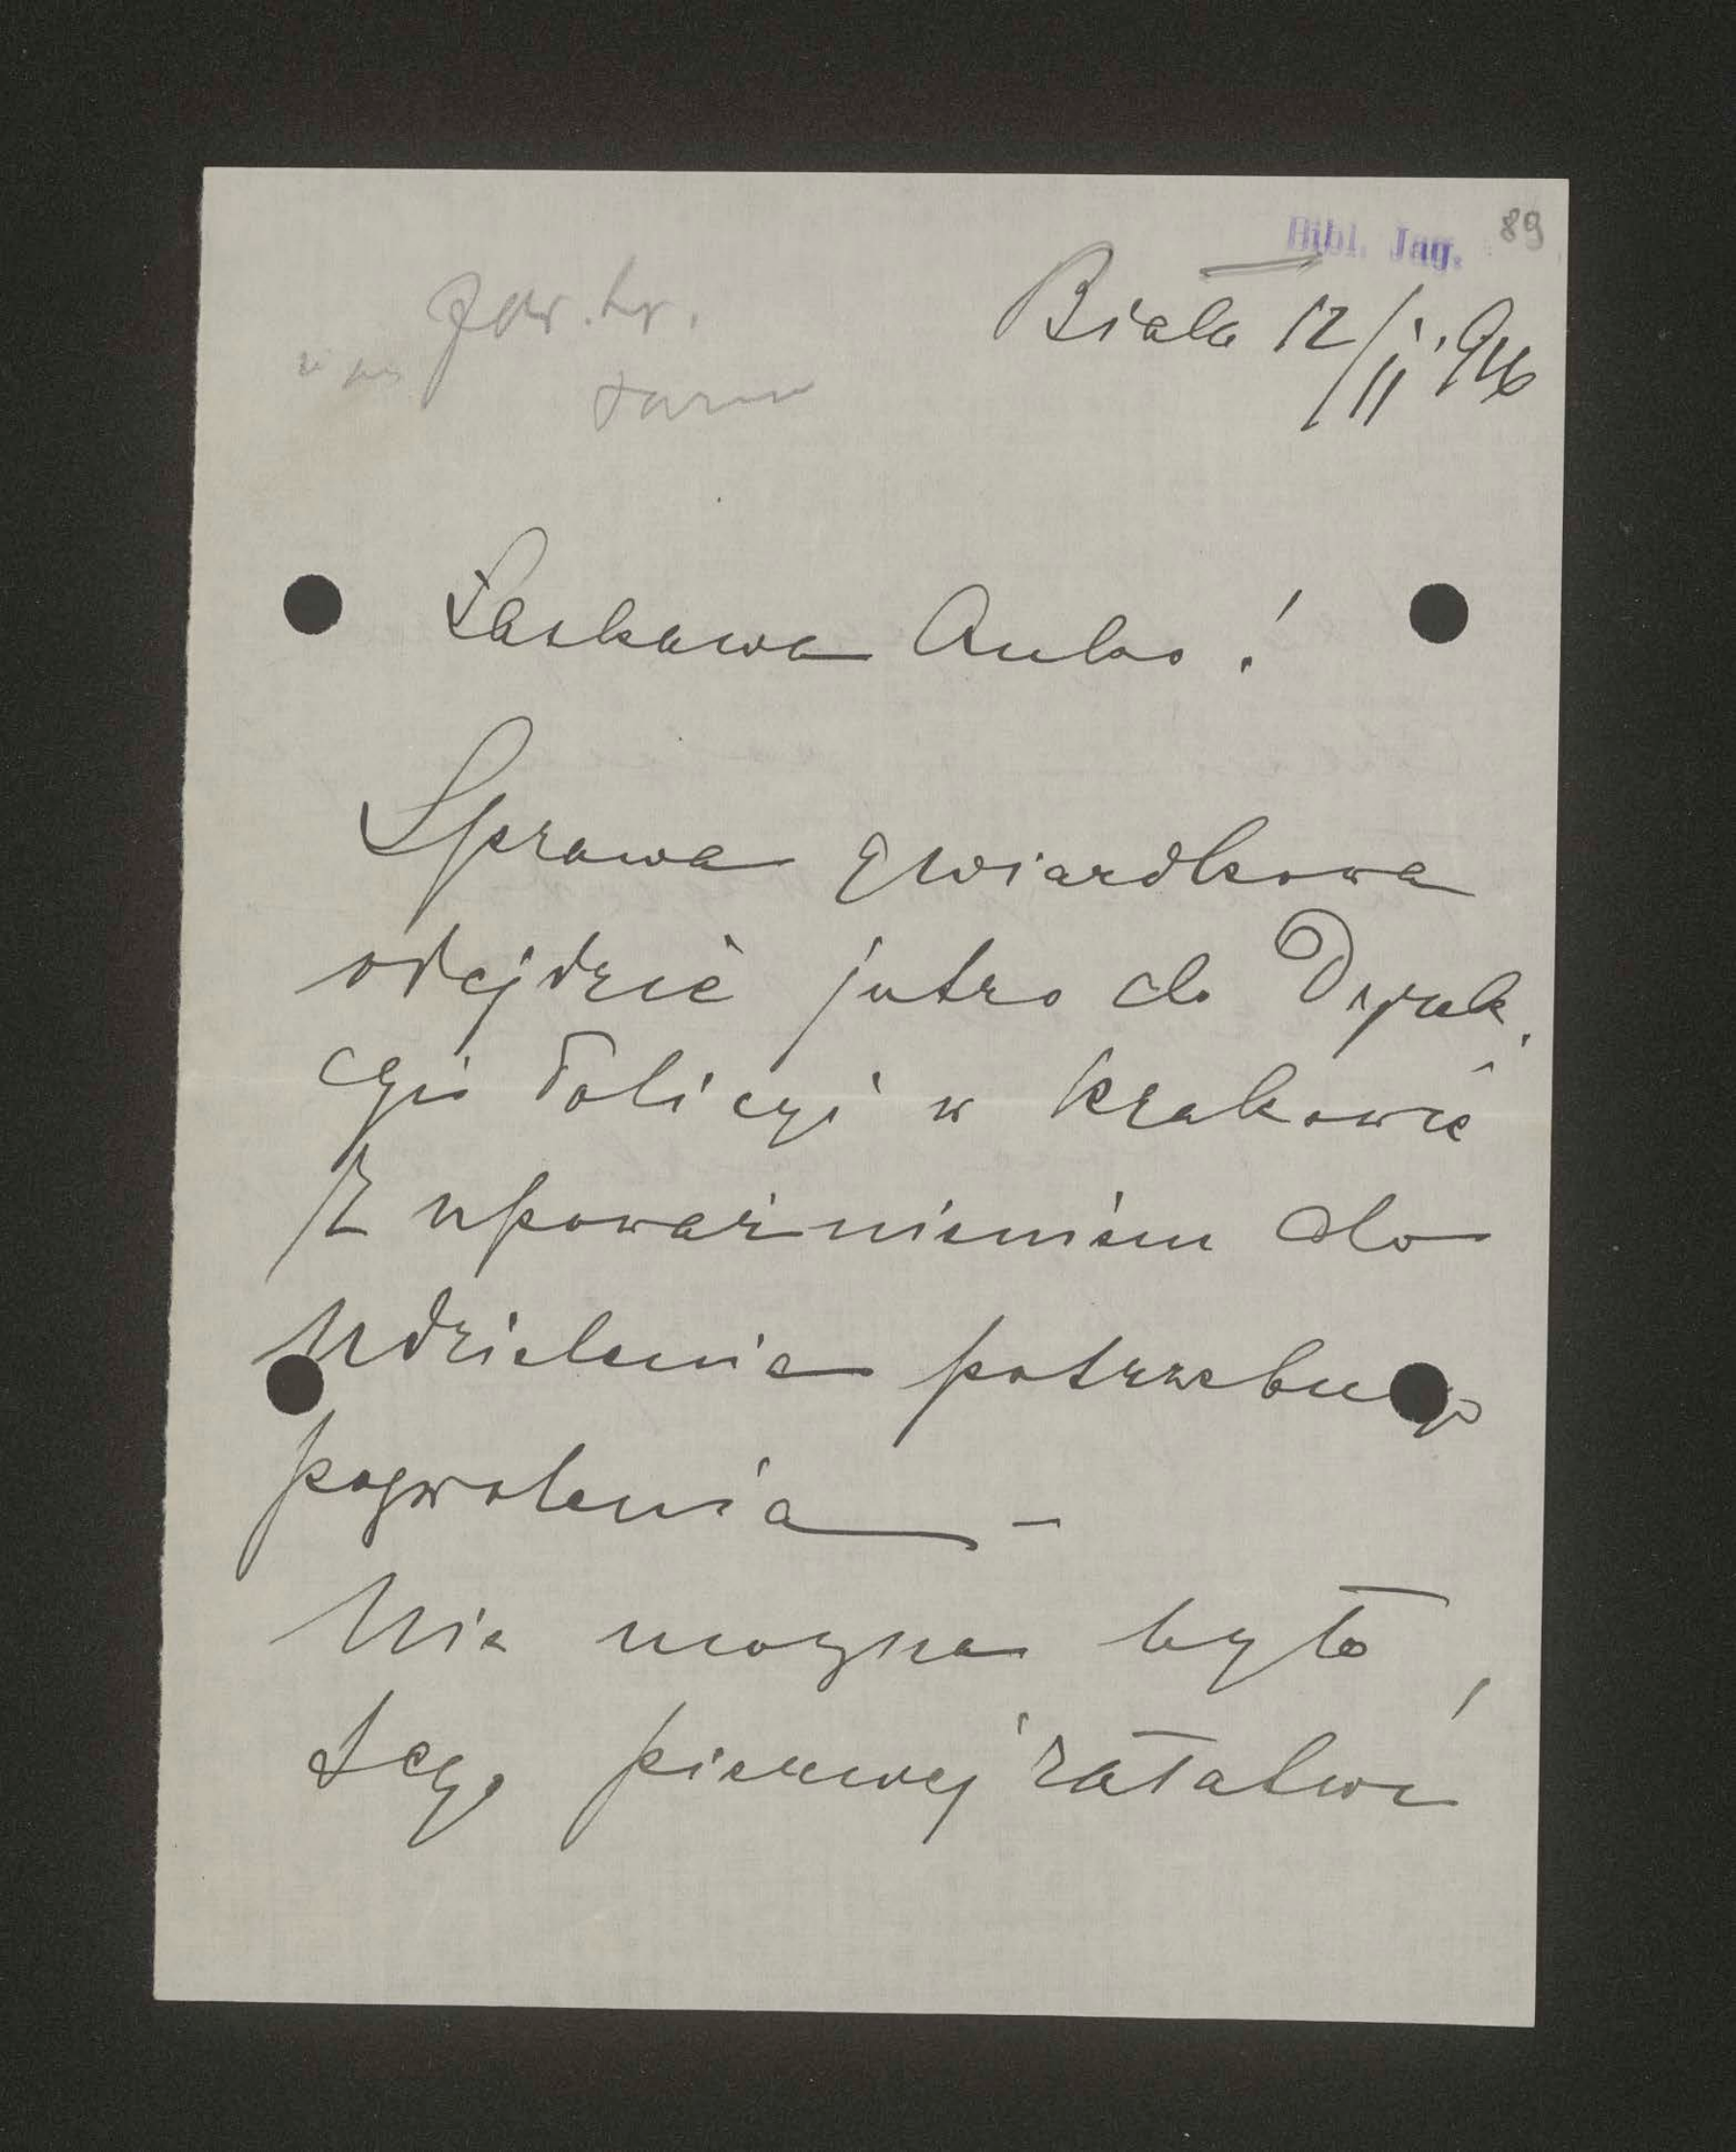 Bibl. Jag. 89
Biała 12/II. 916
Łaskawa Anko!
Sprawa gwiazdkowa
odejdzie jutro do Dyrek,
cyi Policyi w Krakowie
z upoważnieniem do
udzielenia potrzebnego
pozwolenia –
Nie można było
tego pierwej załatwić